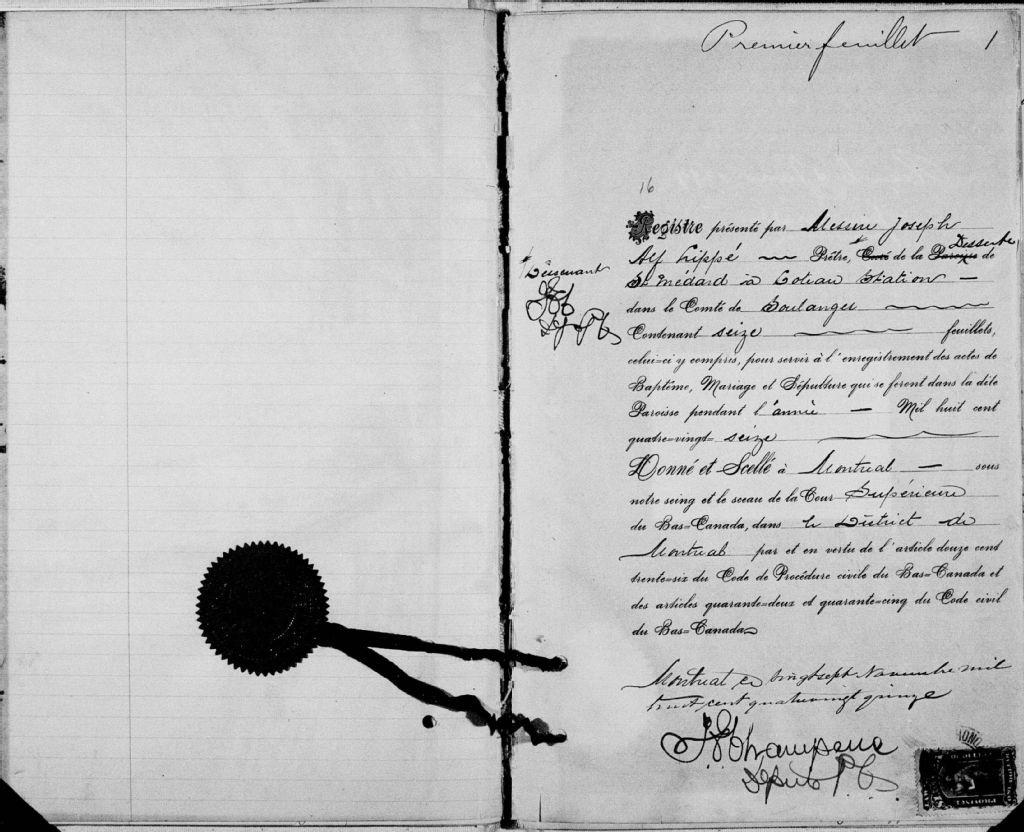 Premier feuillet 1
16
Registre présenté par Messire Joseph
Alf Lippé — Prêtre, * Curé de la Paroisse Desserte de
St Médard à Coteau Station —
dans le Comté de Soulanges
Contenant seize feuillets,
celui=ci y compris, pour servir à l'enregistrement des actes de
Baptême, Mariage et Sépulture qui se feront dans la dite
Paroisse pendant l'année — Mil huit cent
quatre=vingt= seize
Donné et Scellé à Montreal — sous
notre seing et le sceau de la Cour Supérieure
du Bas=Canada, dans le District de
Montreal par et en vertu de l'article douze cent
trente=six du Code de Procédure civile du Bas=Canada et
des articles quarante=deux et quarante=cinq du Code civil
du Bas=Canada
* Desservant
Dep P.C.
Montreal ce vingt sept Novembre mil
huit cent quatre vingt quinze
Champagne
Deputé P.C.